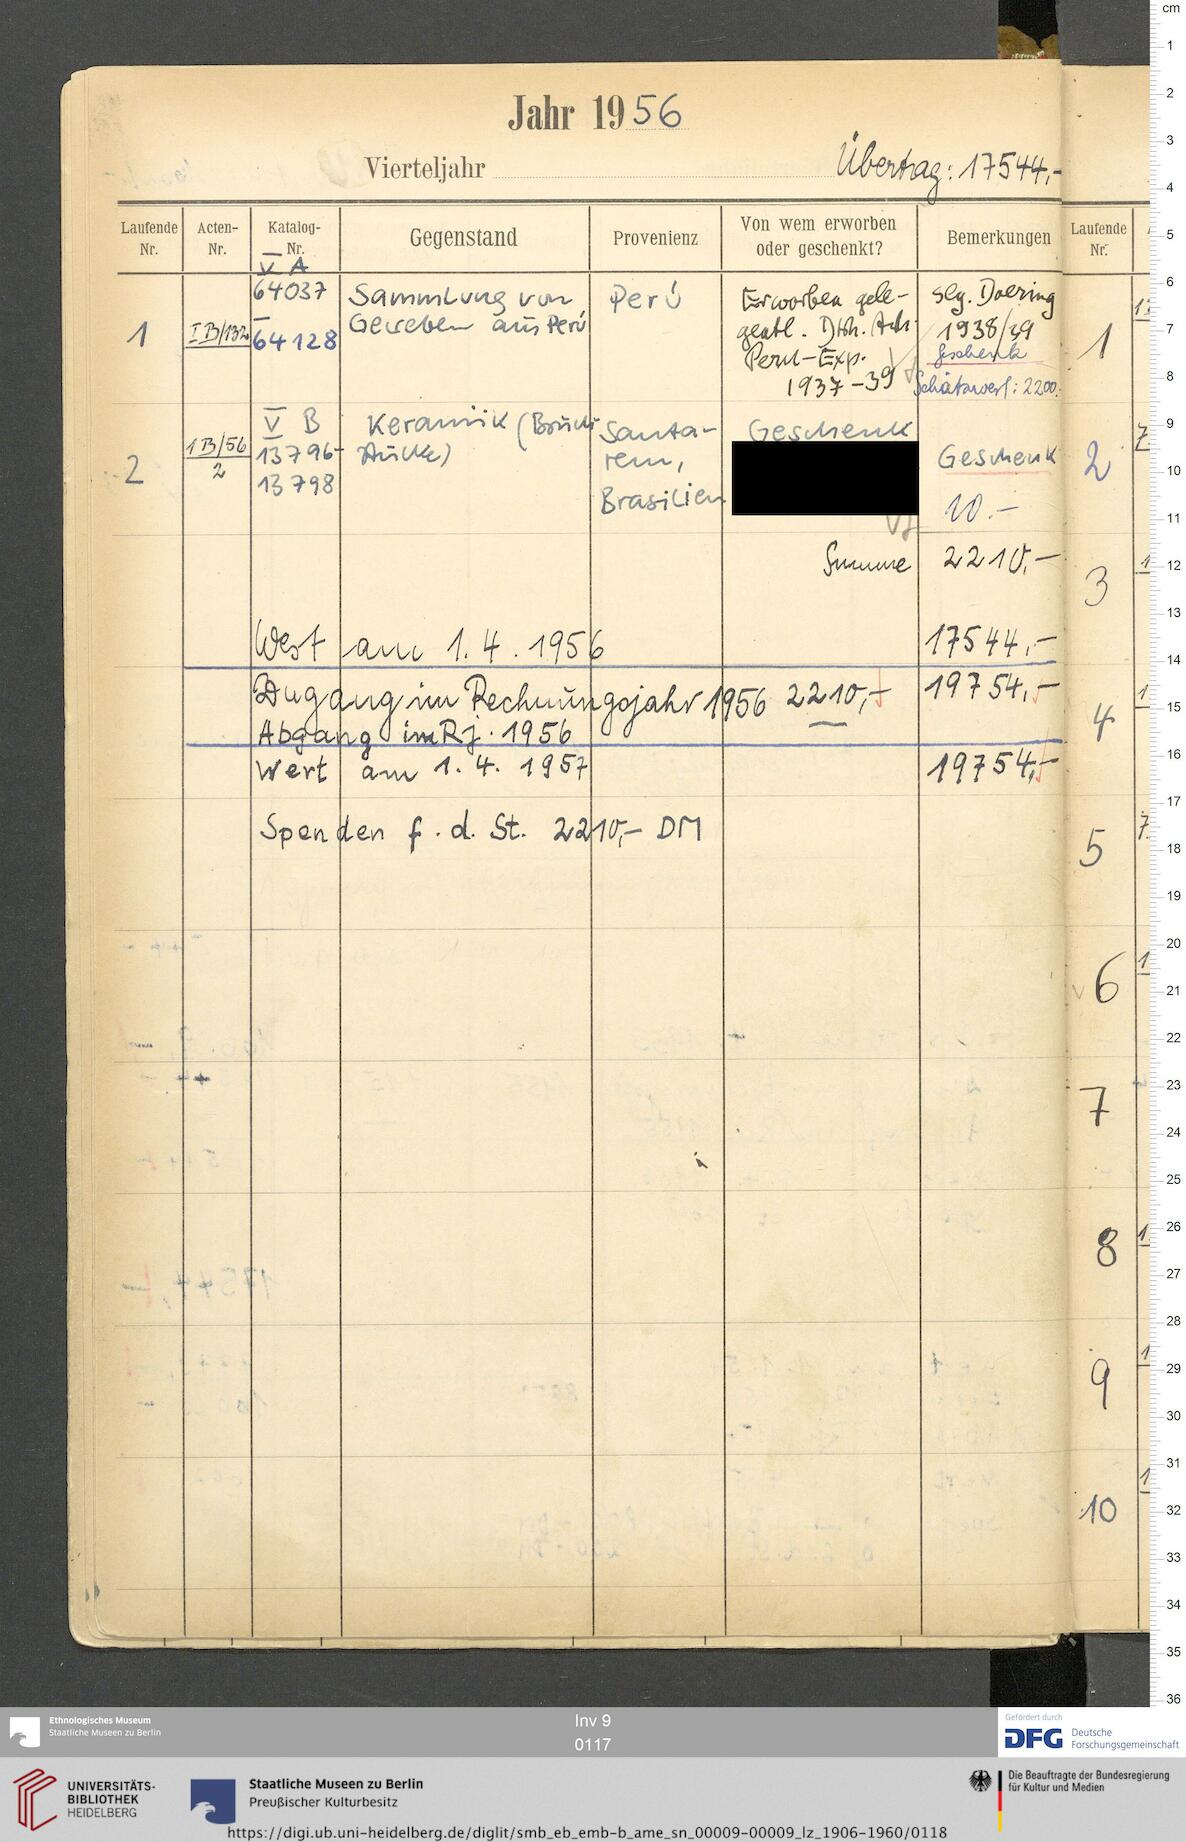 Jahr 1956
Vierteljahr
Übertrag: 17544,-
Laufende Nr.
Acten-Nr.
Katalog-Nr.
Gegenstand
Provenienz
Von wem erworben oder geschenkt?
Bemerkungen
Laufende Nr.
1
I B/132
V A
64037
–
64128
Sammlung von
Geweben aus Perú
Perú
Erworben gele-
gentl. Dtsh.
Peru-Exp.
1937-39
Slg. Doering
1938/39
Geschenk
Schätzwert: 2200.-
2
1B/56
2
V B
13796-
13798
Keramik (Bruch-
stücke)
Santa-
rem,
Brasilien
Geschenk
Geschenk
10.-
Summe 2210,-
Wert am 1.4.1956 17544,-
Zugang im Rechnungsjahr 1956 2210,- 19754,-
Abgang im Rj. 1956
Wert am 1.4.1957 19754,-
Spenden f. d. St. 2210,- DM
1
2
3
4
5
6
7
8
9
10
cm
1
2
3
4
5
6
7
8
9
10
11
12
13
14
15
16
17
18
19
20
21
22
23
24
25
26
27
28
29
30
31
32
33
34
35
36
Ethnologisches Museum
Staatliche Museen zu Berlin
Inv 9
0117
Gefördert durch
DFG
Deutsche
Forschungsgemeinschaft
UNIVERSITÄTS-
BIBLIOTHEK
HEIDELBERG
Staatliche Museen zu Berlin
Preußischer Kulturbesitz
Die Beauftragte der Bundesregierung
für Kultur und Medien
https://digi.ub.uni-heidelberg.de/diglit/smb_eb_emb-b_ame_sn_00009-00009_lz_1906-1960/0118